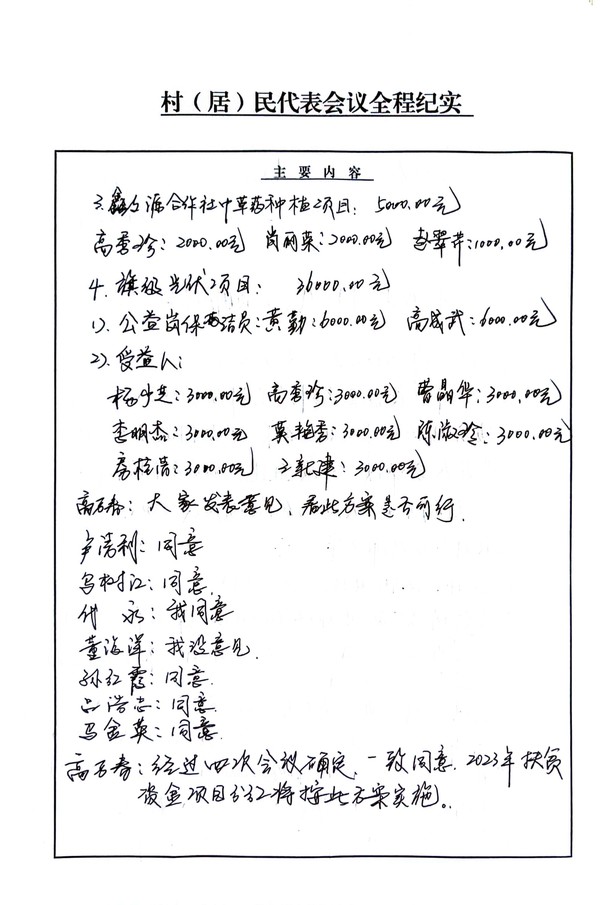 村（居）民代表会议全程纪实
主 要 内 容
3.鑫文源合作社中草药种植项目：5000.00元
高秀珍：2000.00元 尚丽荣：2000.00元 李翠芹：1000.00元
4.旗级光伏项目：36000.00元
1).公益岗保洁员：黄勤：6000.00元 高成武：6000.00元
2).受益人：
杨少芝：3000.00元 高秀珍：3000.00元 曹晶华：3000.00元
李明杰：3000.00元 莫艳香：3000.00元 陈淑玲：3000.00元
房桂清：3000.00元 王新建：3000.00元
高万春：大家发表意见，看此方案是否可行.
卢浩利：同意
乌树江：同意.
付 永：我同意
董海洋：我没意见.
孙红霞：同意.
吕浩忠：同意.
马金英：同意.
高万春：经过四次会议确定，一致同意.2023年扶贫
资金项目分红将按此方案实施。